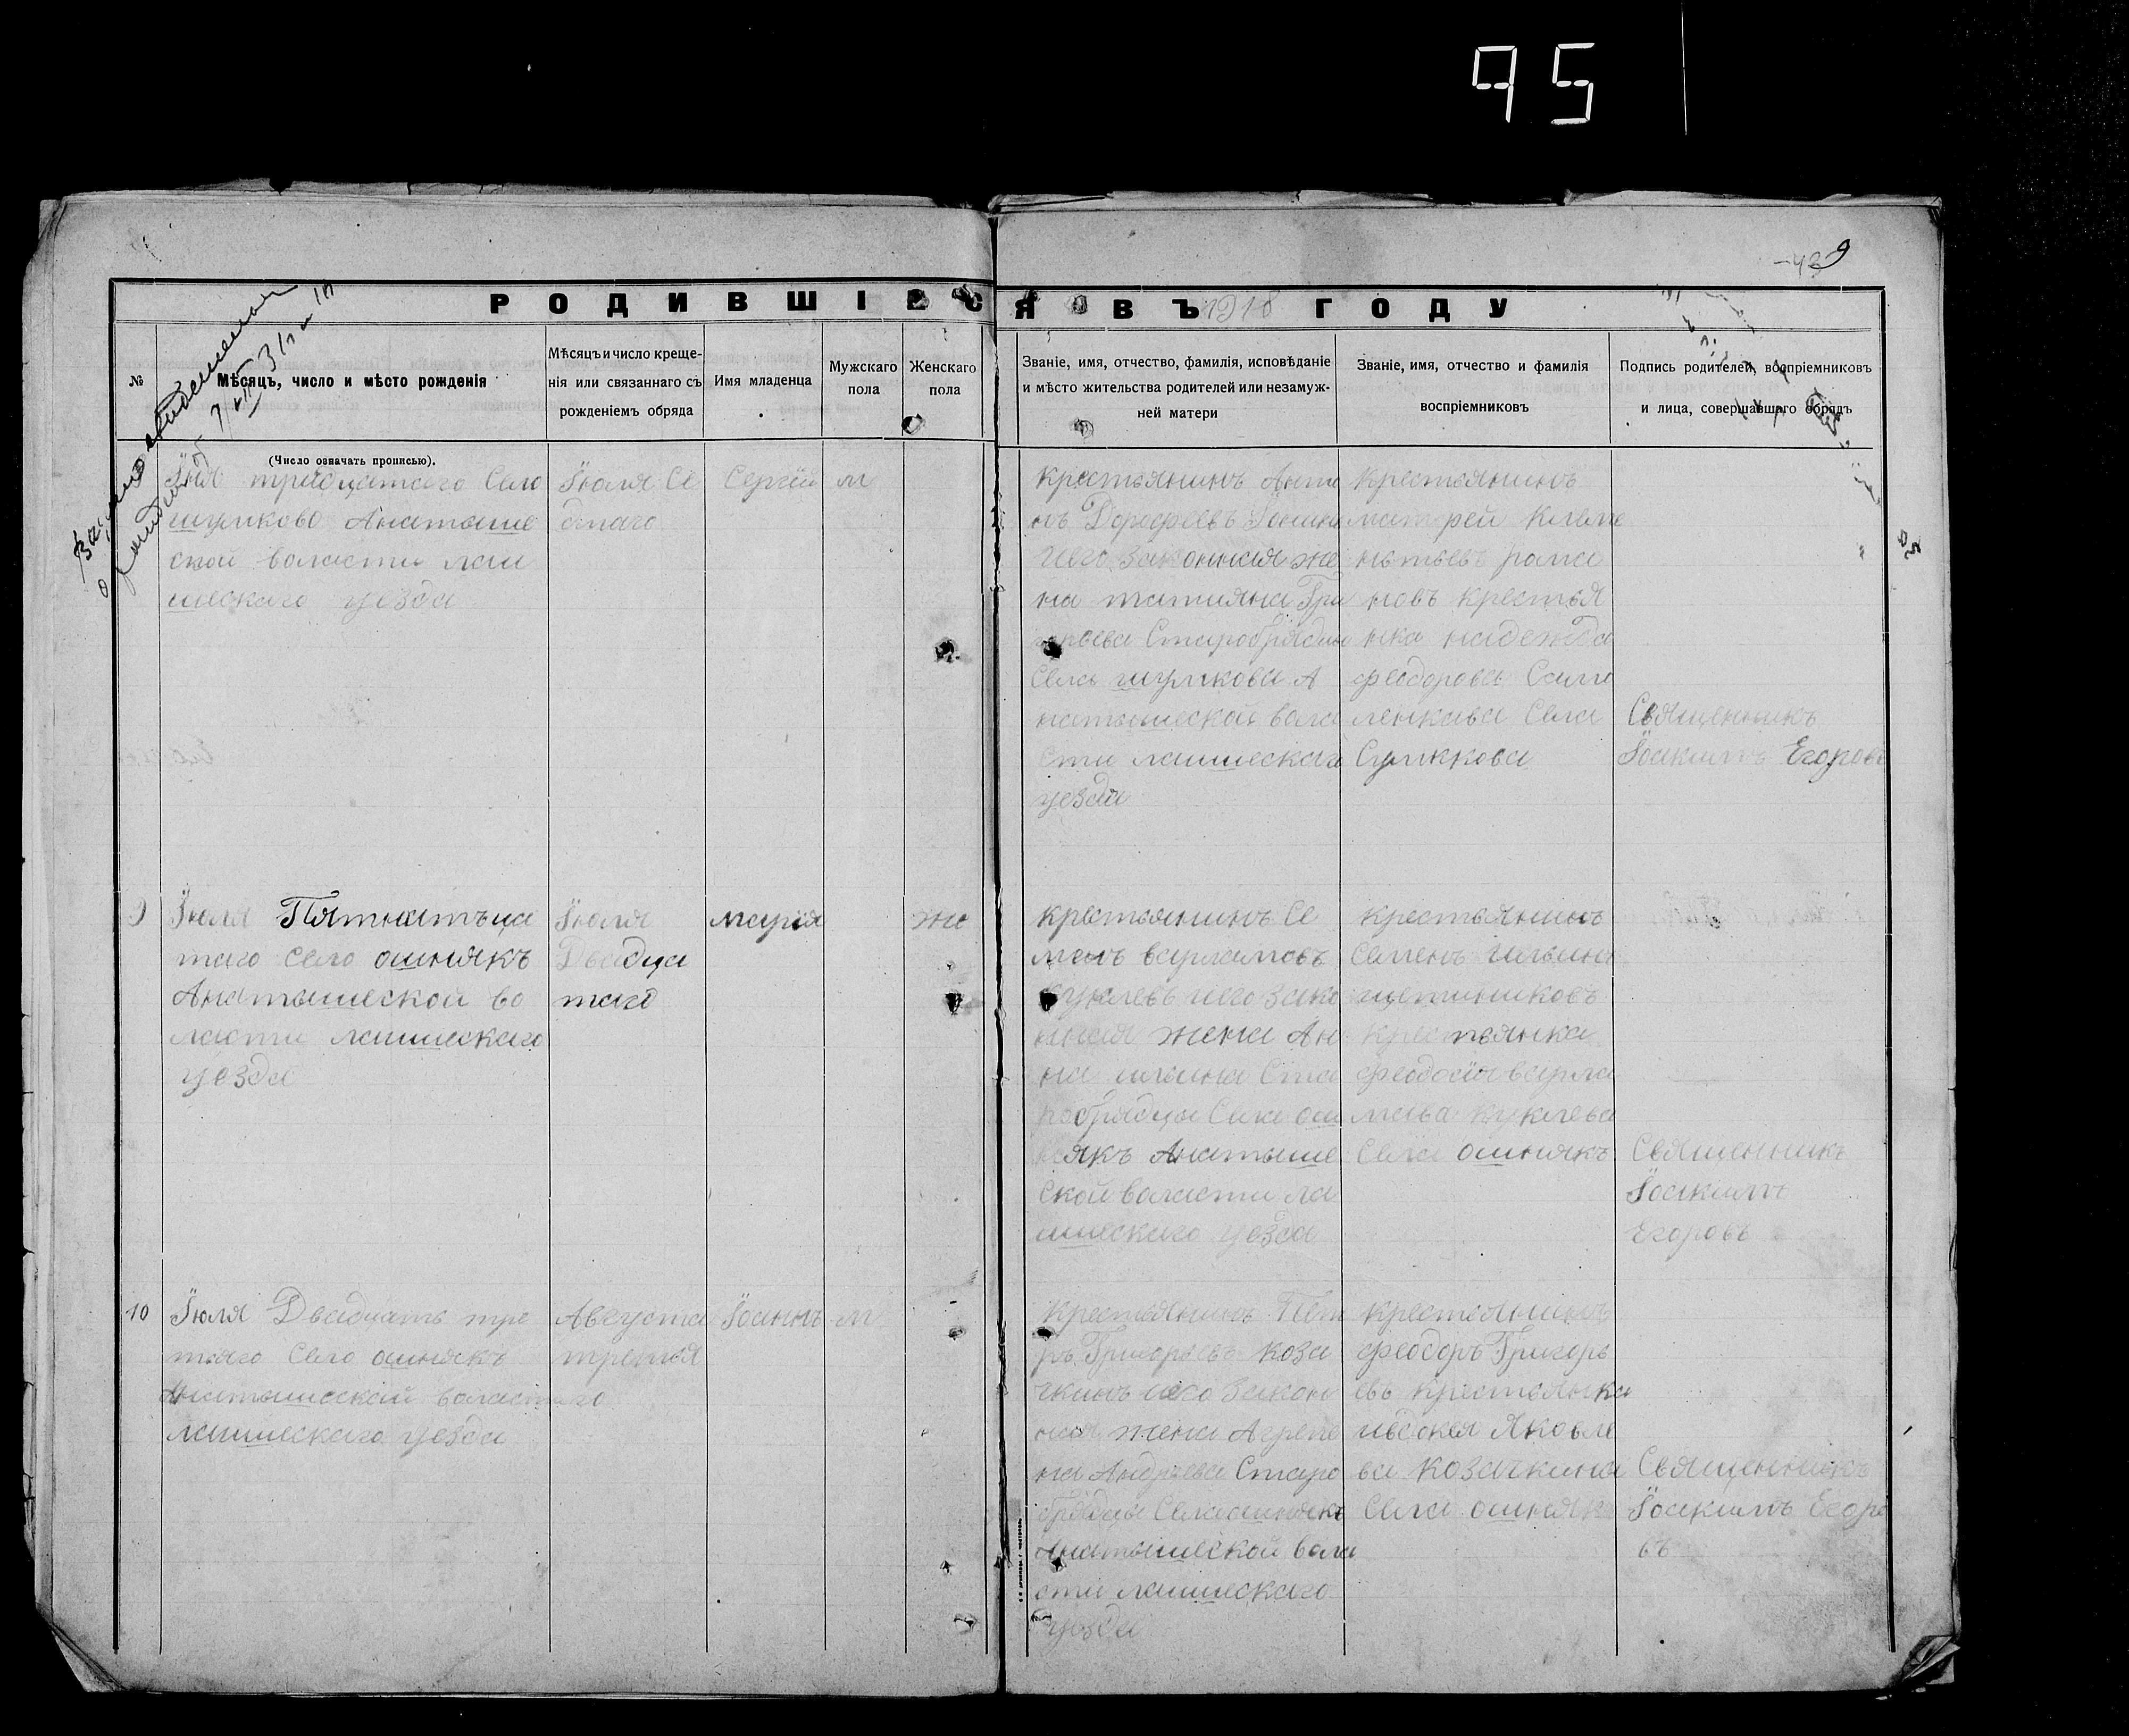 95
9
РОДИВШІЕСЯ ВЪ 1918 ГОДУ
№
Мѣсяцъ, число и мѣсто рожденія
Мѣсяцъ и число креще-
нія или связаннаго съ
рожденіемъ обряда
Имя младенца
Мужскаго
пола
Женскаго
пола
Званіе, имя, отчество, фамилія, исповѣданіе
и мѣсто жительства родителей или незамуж-
ней матери
Званіе, имя, отчество и фамилія
воспріемниковъ
Подпись родителей, воспріемниковъ
и лица, совершавшаго обрядъ
(Число означать прописью).
тридцатаго Село
шумково Анатыше
ской воласти лаи
шескаго уезда
Їюля Се
дмаго
Сергїй
м
Крестьянинъ Анти
нъ Дорофеевъ
иего законная же
на татияна Гри
горьева Старобрядцы
Села шумкова А
натышеской вола
сти лаишескаго
уезда
Крестьянинъ
Клеме
нтьевъ рома
новъ Крестья
нка надежда
феодорова Сама
ленкава Села
Сумккова
Священникъ
Їоакимъ Егоровъ
9
Їюля Пятнатъца
таго Село ошнякъ
Анатышеской во
ласти лаишескаго
уезда
Їюля
Двадца
таго
марїя
же
крестьянинъ Се
менъ варламовъ
куклевъ иего зако
нная жена Ан
на ильина Ста
робрядцы Села ош
някъ Анатыше
ской воласти ла
ишескаго уезда
Крестьянинъ
Семенъ ильинъ
щетинниковъ
Крестьянка
феодосїя варла
мава куклева
Села ошнякъ
Священникъ
Їоакимъ
Егоровъ
10
Їюля Двадцать тре
тьяго Село ошнякъ
Анатышеской воласти
лаишескаго уезда
Августа
третья
го
Їоаннъ
м
Крестьянинъ Пет
ръ Григорьевъ коза
чкинъ иего закон
ная жена Агрепе
на Андреева Старо
брядцы Села ошнякъ
Анатышеской вола
сти лаишескаго
уезда
Крестьянинъ
феодоръ Григорь
евъ Крестьянка
ивдокея Яковле
ва козачкина
Села ошнякъ
Священникъ
Їоакимъ Егоро
въ